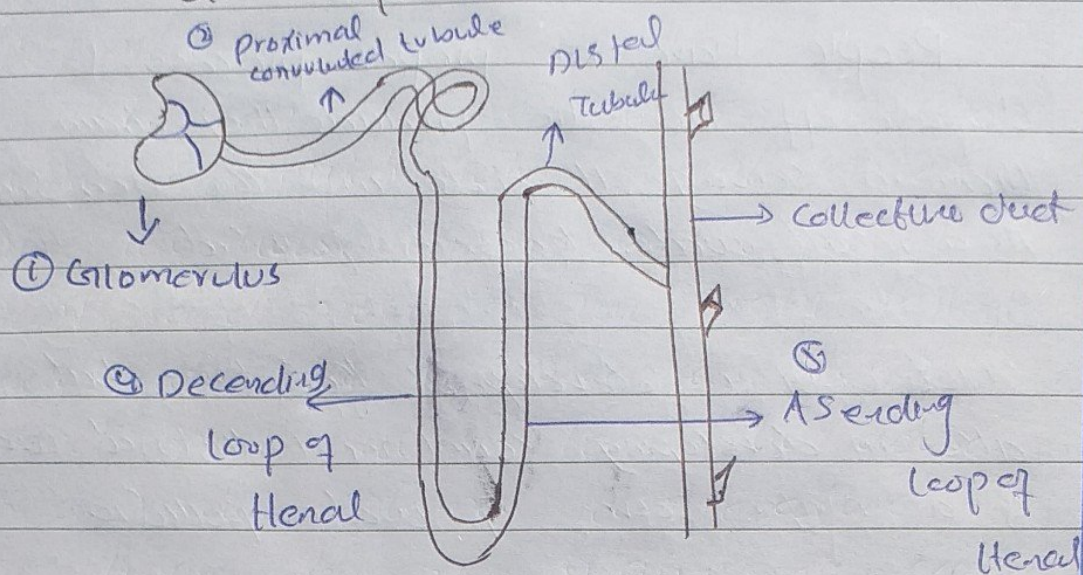 ② Proximal
convuluded tubule
Distal
Tubule
→ Collective duct
① Glomerulus
④ Decending
loop of
Henal
⑤
ASending
loop of
Henal